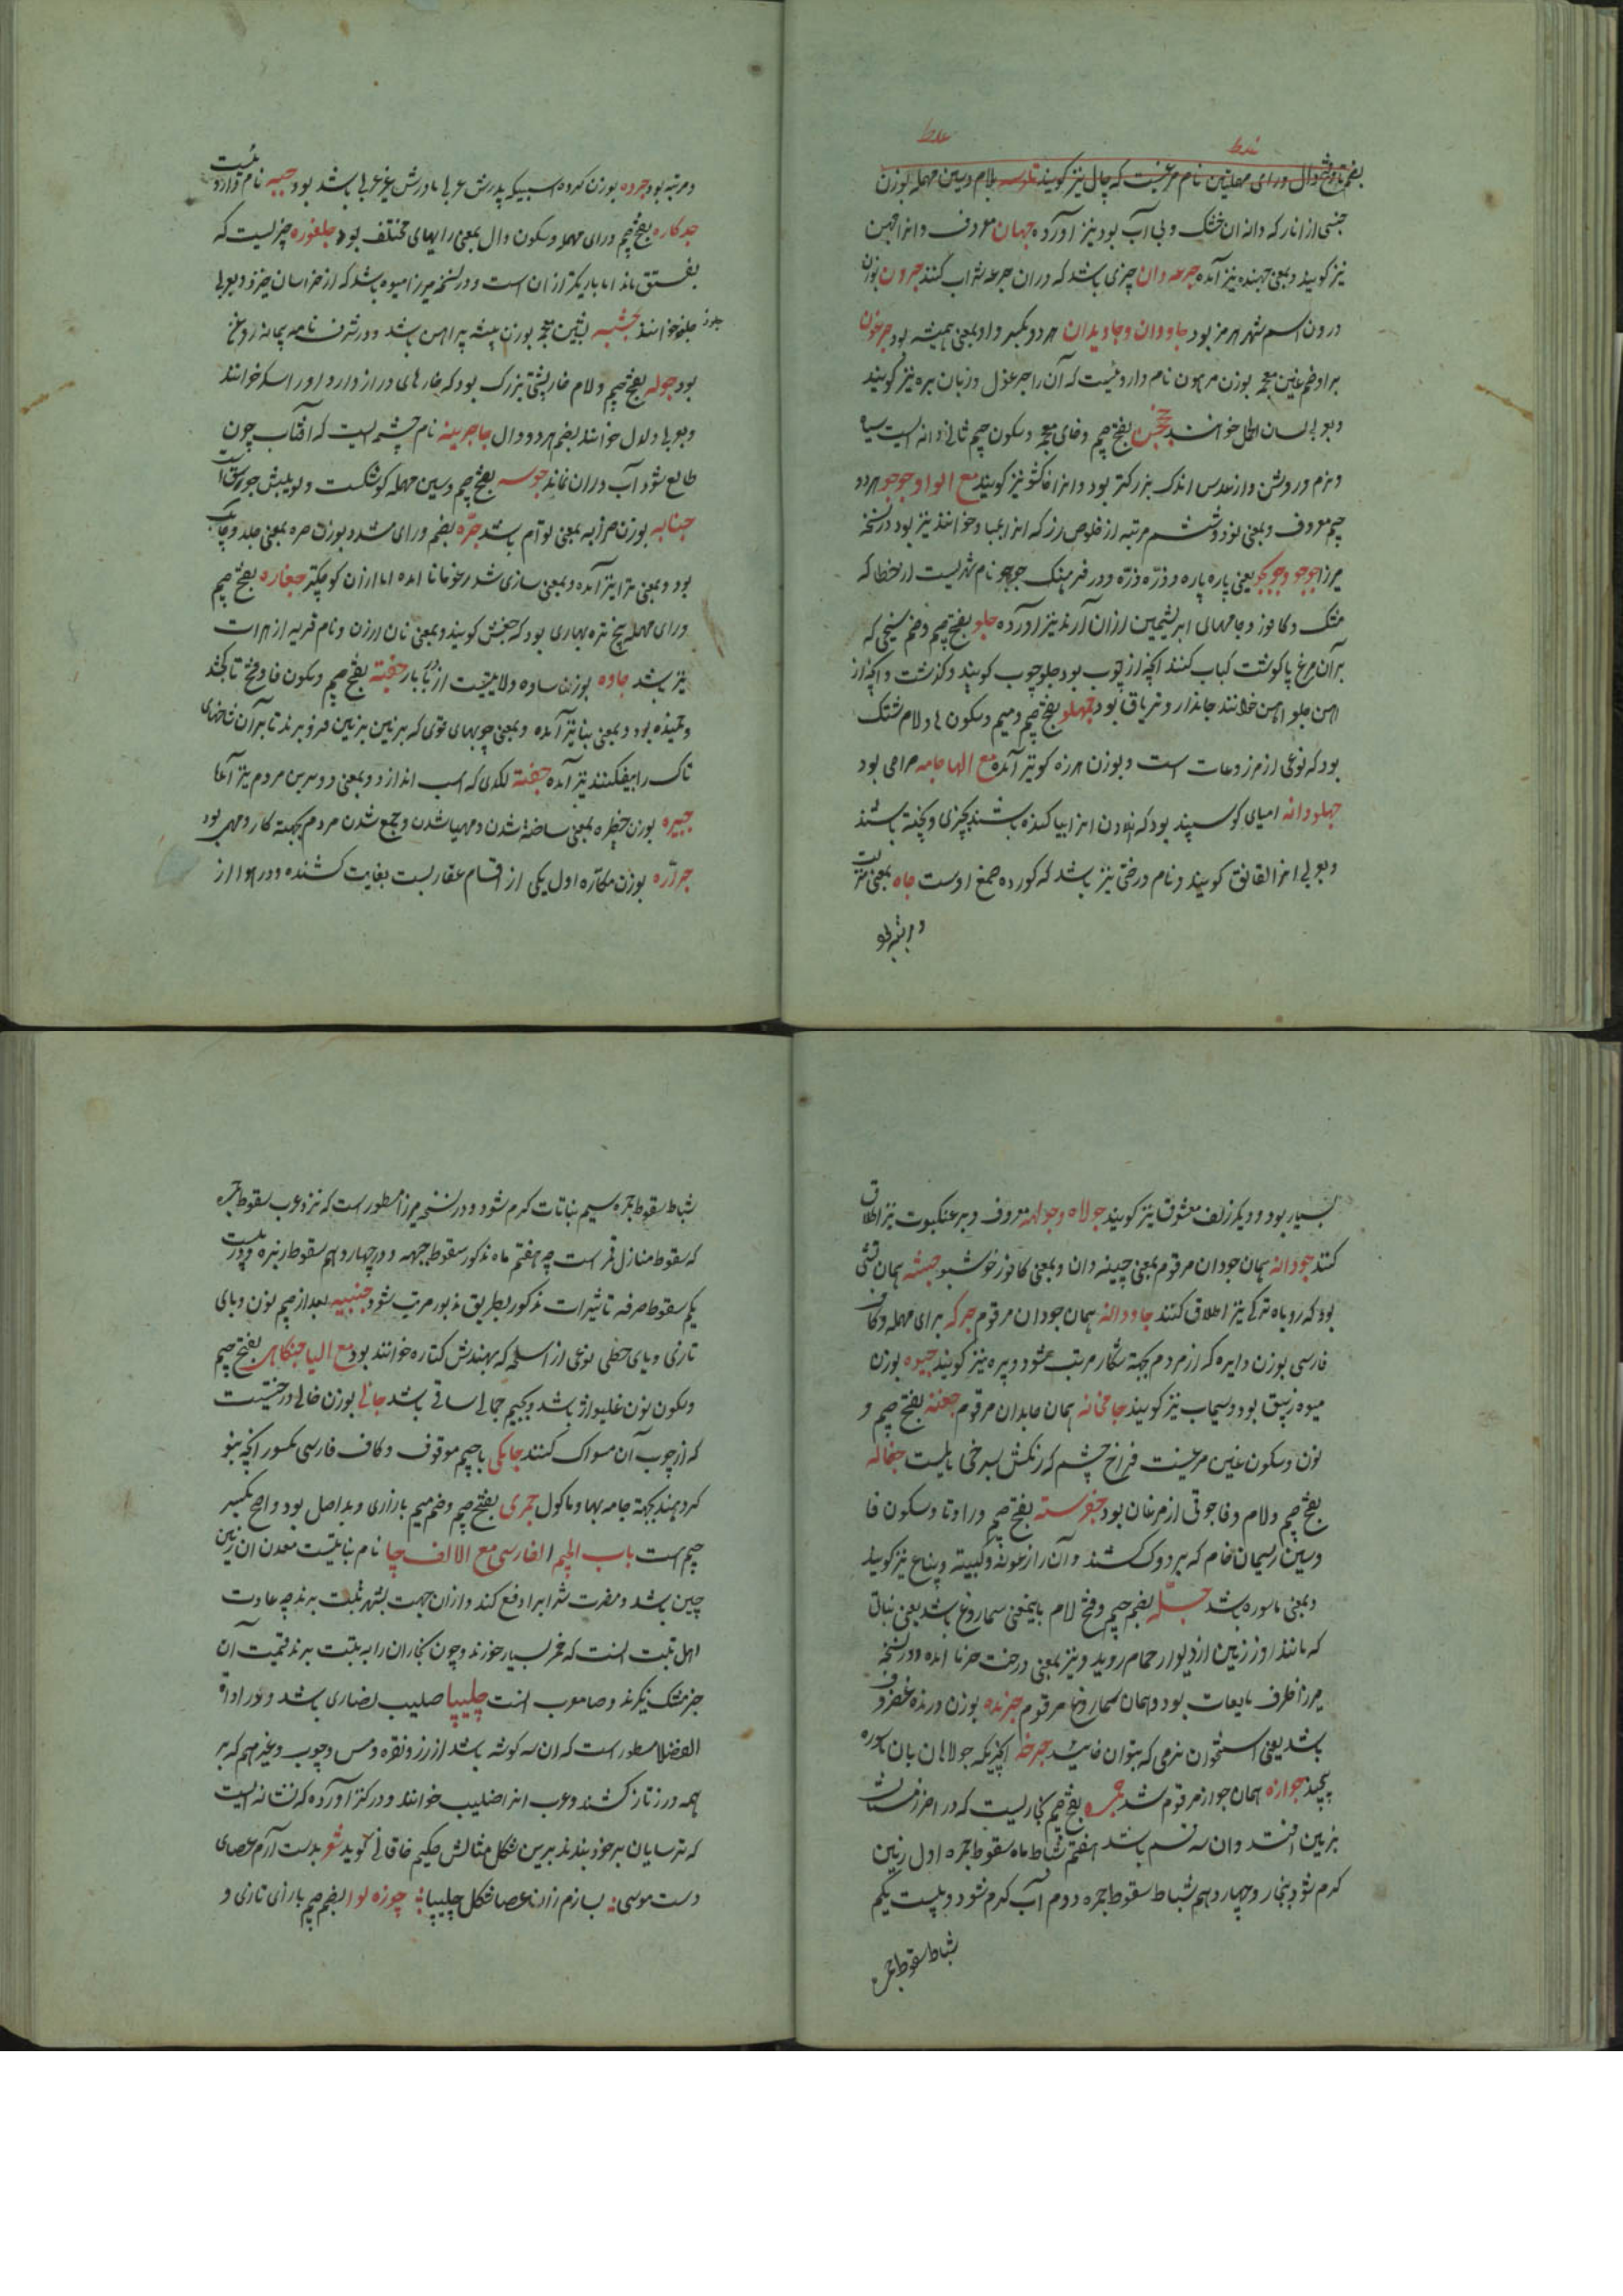 غلط غلط
بفتح تا و شد دال و رای مهملتین نام مرغیست که چال نیز گویند بلام و سین مهمله بوزن
جنسی از انار که دانه ان خشک و بی آب بود نیز آورده جهان معروف و انرا جهن
نیز گویند و بمعنی جهنده نیز آمده جرعه دان چیزی باشد که دران جرعه شراب کنند جرون بوزن
درون اسم شهر هرمز بود جاودان و جاویدان هر دو بکسر واو بمعنی همیشه بود جرغون
برا و ضم غین معجمه بوزن مرهون نام داروئیست که آن را جرغول و زبان بره نیز گویند
و بعربی لسان الحمل خوانند بفتح جیم و خای معجمه و سکون جیم ثانی دانه ایست سیاه
و نرم و روشن و از عدس اندک بزرکتر بود و انرا خاکشو نیز گویند مع الواو جوجو هر دو
جیم معروف و بمعنی نود و شش مرتبه از فلوس زر که انرا خوانند نیز بود در نسخه
میرزا جوجو یعنی پاره پاره و ذره ذره و در فرهنگ جوجو نام شهریست از خطا که
مشک و کافور و جامهای ابریشمین ازان آرند نیز آورده جلو بفتح جیم و ضم سیخی که
بران مرغ یا کوشت کباب کنند آنچه از چوب بود جلو چوب کویند و آنچه از
اهن جلو اهن خوانند جاندارو تریاق بود جمهلو بفتح جیم و میم و سکون ها و لام مشنک
بود که نوعی از مزروعات است و بوزن هرزه کو نیز آمده مع الها جامه صراحی بود
جهلودانه امعای کوسپند بود که انرا بیاکنده باشند بچیزی و پخته باشند
و بعربی انرا لقانق کویند و نام درختی نیز باشد که صمغ اوست جاه بمعنی منزلت
و مرتبه بود
و مرتبه بود جرده بوزن کرده اسبی که پدرش عربی مادرش غیر عربی باشد بود جببه نام داروئیست
جدکاره بفتح جیم و رای مهمله و سکون دال بمعنی رایهای مختلف بود جلغوزه چیزیست که
بفستق ماند اما باریکتر ازان است و در نسخه میرزا میوه باشد که از خراسان خیزد و بعربی
جلوز خوانند جشه بشین معجمه بوزن پیشه پیراهن باشد و در شرفنامه پیمانه روغن
بود جوله بفتح جیم و لام خارپشتی بزرک بود که خارهای دراز دارد و اورا سکر خوانند
و بعربی دلدل خوانند بضم هر دو دال جاجرمینه نام چشمه ایست که آفتاب چون
طالع شود آب دران نماند جوسه بفتح جیم و سین مهمله کوشکست و لویش جوسق است
جنابه بوزن خرابه بمعنی توأم باشد جرّه بضم و رای مشدد بوزن مره بمعنی جلد و چابک
بود و بمعنی نر نیز آمده و بمعنی سازی شد اما ازان کوچکتر جغاره بفتح جیم
و رای مهمله بیخ تره بهاری بود که کویند و بمعنی نان ارزن و نام قریه از هرات
نیز باشد جاوه بوزن ساوه ولایتیست از زنکبار جفته بفتح جیم و سکون فا و فتح تا کجند
و خمیده بود و بمعنی بنا نیز آمده و بمعنی چوبهای قوی که بر زمین فرو برند تا بران شاخهای
تاک را بیفکنند نیز آمده جفته لکدی که اسب اندازد و بمعنی دو سرین مردم نیز آمده
جبیره بوزن خطیره بمعنی ساخته شدن و مهیا شدن و جمع شدن مردم بجهت کار و مهمی بود
جراره بوزن مکاره اول یکی از اقسام عقاربست بغایت کشنده و در اهواز
بسیار بود و دیکر زلف معشوق نیز گویند جولاه و جولاهه معروف و بر عنکبوت نیز اطلاق
کنند جودانه همان جودان مرقوم بمعنی چینه دان و بمعنی کافور خوشبو جبشه همان
بود که روباه ترکی نیز اطلاق کنند جاودانه همان جودان مرقوم جرکه برای مهمله و کاف
فارسی بوزن دایره که از مردم بجهت شکار مرتب شود و پره نیز گویند جیوه بوزن
میوه زیبق بود و سیماب نیز گویند جامخانه همان جامدان مرقوم جغنه بفتح جیم و
نون و سکون غین مرغیست فراخ چشم که رنگش بسرخی مایلست جفاله
بفتح جیم و لام و فا جوقی از مرغان بود جغرسته بفتح جیم و را و تا و سکون فا
و سین ریسمان خام که بر دوک کشند و آن را نیز گویند
و بمعنی ماسوره باشد جله بضم جیم و فتح لام بمعنی سماروغ باشد یعنی نباتی
که مانند از زمین از دیوار حمام روید و نیز بمعنی درخت خرما آمده و در نسخه
میرزا ظرف مایعات بود و همان سماروغ مرقوم جرنده بوزن درنده غضروف
باشد یعنی استخوان نرمی که بتوان خائید جرخه انچیزیکه جولاهان بان ماسوره
پیچند جوازه همان جواز مرقوم شد جمره بفتح جیم بخاریست که در اخر زمستان
بزمین افتد و ان سه قسم باشد هفتم شباط ماه سقوط جمره اول زمین
کرم شود بخار و چهاردهم شباط سقوط جمره دوم آب کرم شود و بیست یکم
شباط سقوط جمره
شباط سقوط جمره سیم نباتات کرم شود و در نسخه میرزا مسطور است که نزد عرب سقوط جمره
که سقوط منازل قمر است چه هفتم ماه مذکور سقوط جبهه و در چهاردهم سقوط زبره و در بیست
یکم سقوط صرفه تاثیرات مذکور بطریق مزبور مرتب شود جنبیه بعد از جیم نون و بای
تازی و یای حطی نوعی از اسلحه که بهندش کتاره خوانند بود مع الیا جنکاهی بفتح جیم
و سکون نون غلیواژ باشد و بجیم جمالی ساقی باشد جالی بوزن خالی درختیست
که از چوب آن مسواک کنند جامکی با جیم موقوف و کاف فارسی مکسور آنچه بنو
کر دهند بجهت جامه بها و ماکول جمری بفتح جیم و ضم میم بازاری و بد اصل بود و اصح بکسر
جیم است باب الجیم الفارسی مع الالف چا نام نباتیست معدن ان زمین
چین باشد و مضرت شراب را دفع کند و ازان جهت بشهر تبت برند چه عادت
اهل تبت انست که خمر بسیار خورند و چون تجاران را به تبت برند قیمت آن
جز مشک نکیرند و معرب انست چلیپا صلیب نصاری باشد و در ادات
الفضلا مسطور است که ان سه کوشه باشد از زر و نقره و مس و چوب و غیرهم که بر
همه درزنار کشند و عرب انرا صلیب خوانند و در کنز آورده که نشانه ایست
که ترسایان بر خود بندند برین شکل مثالش حکیم خاقانی کوید شعر بدست آرم عصای
دست موسی بسازم زان عصا شکل چلیپا چوزه لوا بضم جیم با زای تازی و